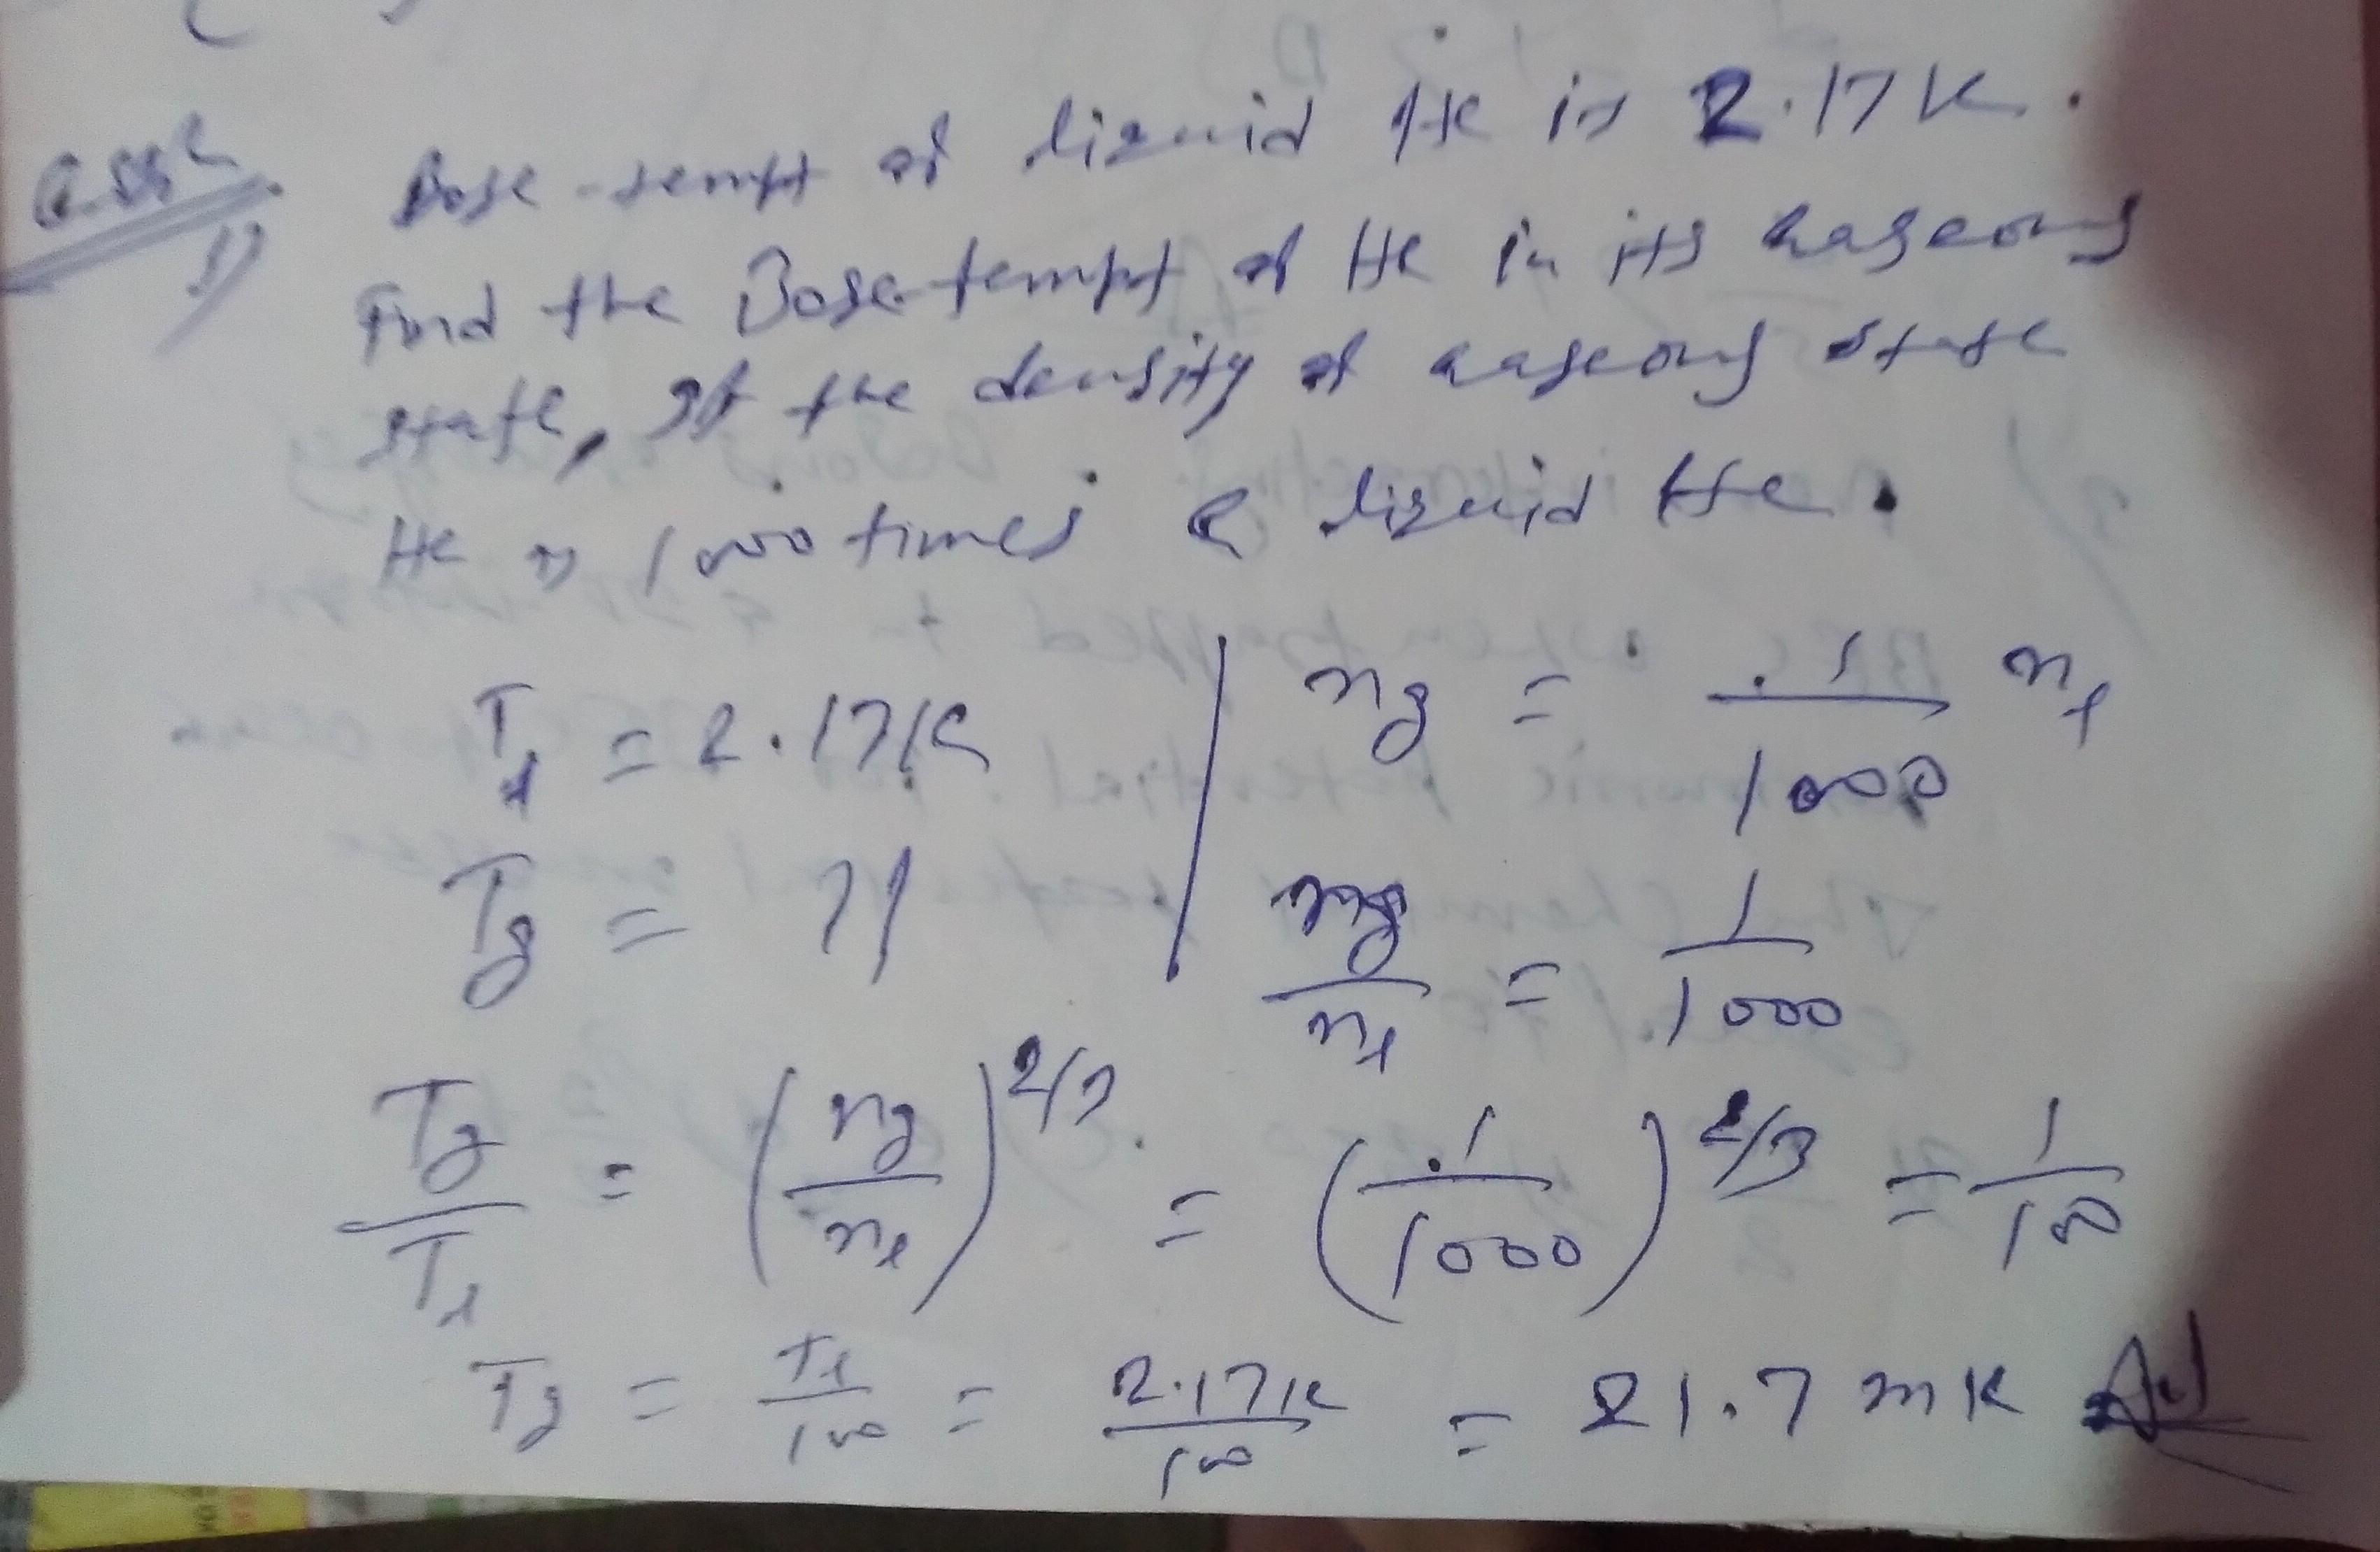 1)
Bose-tempt of liquid He is 2.17 K.
Find the Bose-tempt of He in its gaseous
state, If the density of gaseous state
He is 1000 times liquid He.
T_l = 2.17K | n_g = 1/1000 n_l
T_g = ?? | n_g/n_l = 1/1000
T_g/T_l = (n_g/n_l)^2/3 = (1/1000)^2/3 = 1/100
T_g = T_l/100 = 2.17K/100 = 21.7 mK